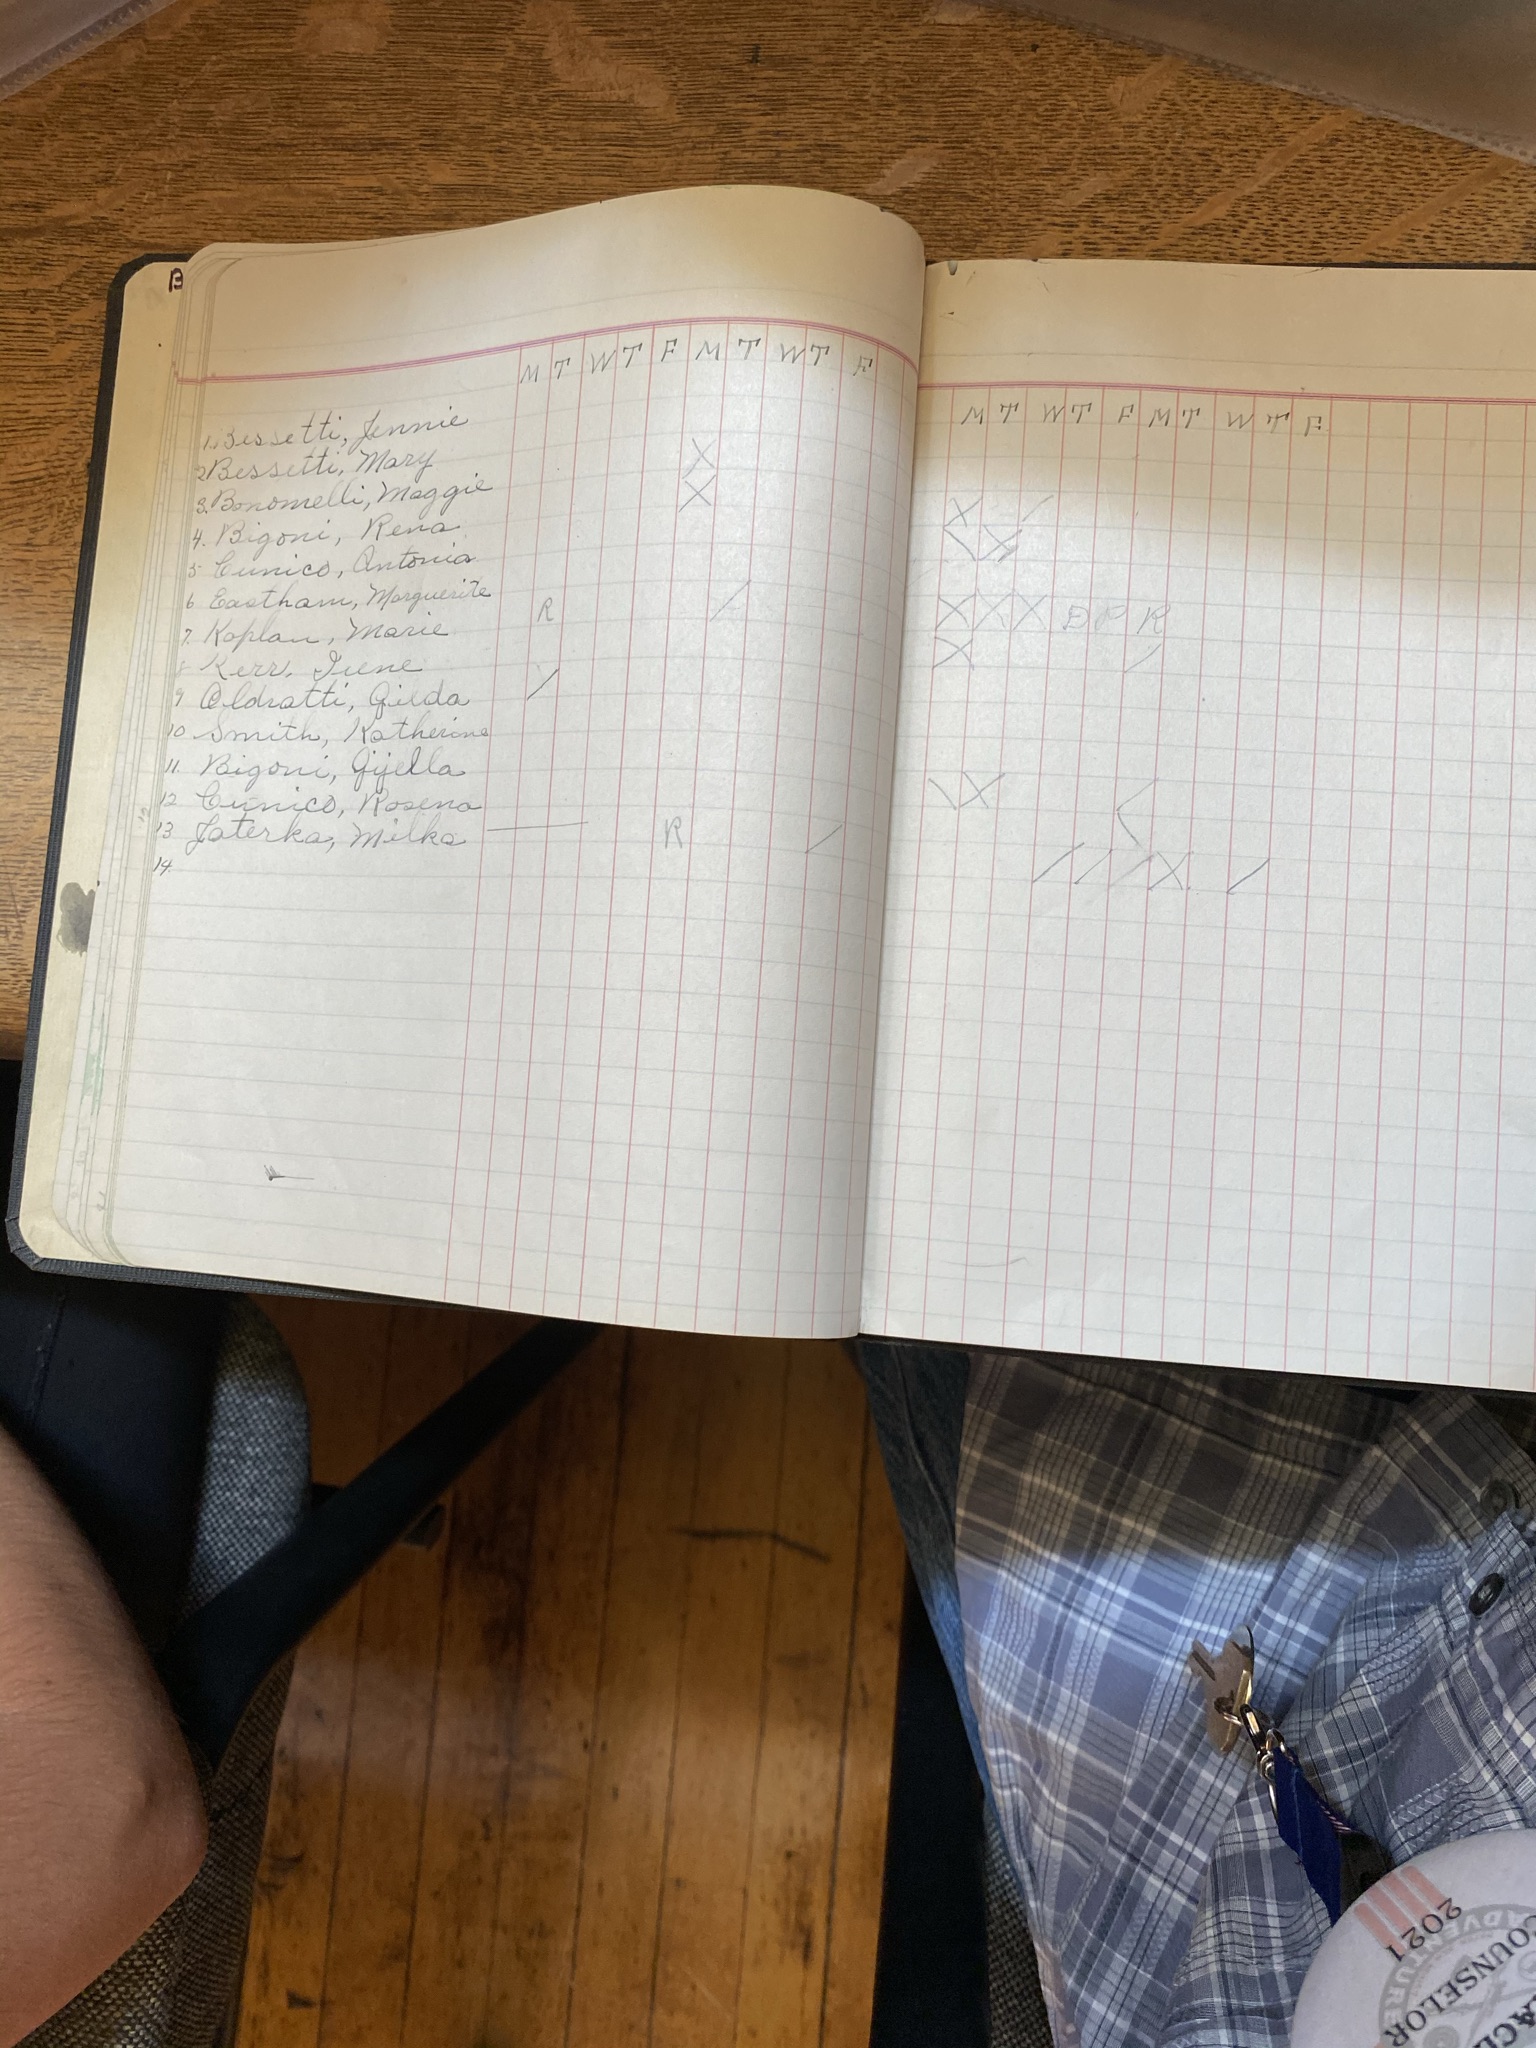 B
M T W T F M T W T F
M T W T F M T W T F
1. Bessetti, Jennie
2 Bessetti, Mary X
3. Bonomelli, Maggie X
4. Bigoni, Rena
5 Cunico, Antonia
6 Eastham, Marguerite
7. Kaplan, Marie R /
8 Kerr, Irene
9 Oldratti, Gilda /
10 Smith, Katherine
11. Bigoni, Gijella
12 Cunico, Rosena
13 Jaterka, Milka R /
14.
X /
\ X
X X X D P R
X /
\ X
/ / / X /
2021
COUNSELOR
ADVENTURE